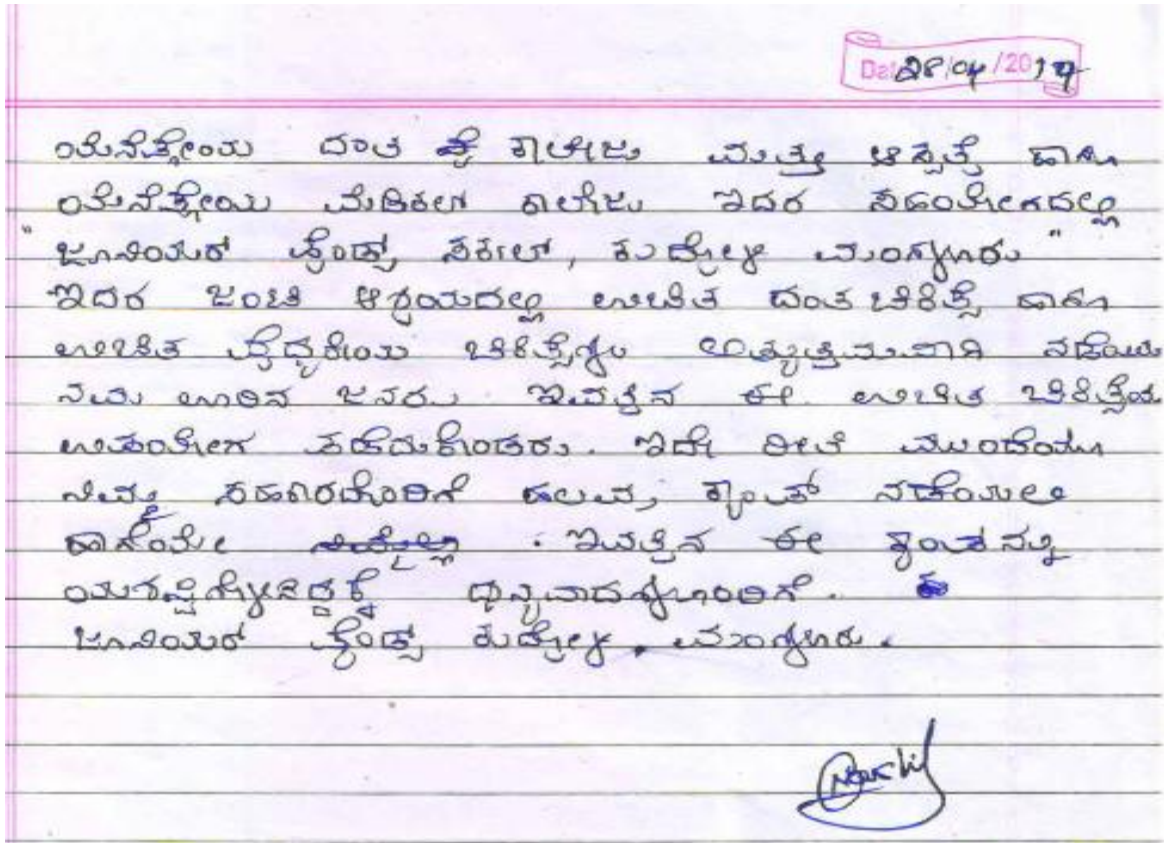 Date 28/04/2017
ಯೆನೆಪೋಯ ದಂತ ಕಾಲೇಜು ಮತ್ತು ಆಸ್ಪತ್ರೆ ಹಾಗೂ
ಯೆನೆಪೋಯ ಮೆಡಿಕಲ್ ಕಾಲೇಜು ಇದರ ಸಹಯೋಗದಲ್ಲಿ
"ಜೂನಿಯರ್ ಫ್ರೆಂಡ್ಸ್ ಸರ್ಕಲ್, ಕುದ್ರೋಳಿ ಮಂಗಳೂರು"
ಇದರ ಜಂಟಿ ಆಶ್ರಯದಲ್ಲಿ ಉಚಿತ ದಂತ ಚಿಕಿತ್ಸೆ ಹಾಗೂ
ಉಚಿತ ವೈದ್ಯಕೀಯ ಚಿಕಿತ್ಸೆಗಳು ಅತ್ಯುತ್ತಮವಾಗಿ ನಡೆಯಿತು
ನಮ್ಮ ಊರಿನ ಜನರು ಇವತ್ತಿನ ಈ ಉಚಿತ ಚಿಕಿತ್ಸೆಯ
ಉಪಯೋಗ ಪಡೆದುಕೊಂಡರು. ಇದೇ ರೀತಿ ಮುಂದೆಯೂ
ನಿಮ್ಮ ಸಹಕಾರದೊಂದಿಗೆ ಹಲವು ಕ್ಯಾಂಪ್ ನಡೆಯಲಿ
ಹಾಗೆಯೇ . ಇವತ್ತಿನ ಈ ಕ್ಯಾಂಪನ್ನು
ಯಶಸ್ವಿಗೊಳಿಸಿದ್ದಕ್ಕೆ ಧನ್ಯವಾದಗಳೊಂದಿಗೆ.
ಜೂನಿಯರ್ ಫ್ರೆಂಡ್ಸ್ ಕುದ್ರೋಳಿ, ಮಂಗಳೂರು.